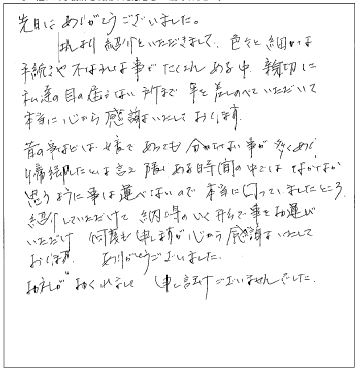 先日は ありがとうございました。
り 紹介をいただきまして、色々と細かな
手続きや 不なれな事が たくさん ある中、親切に
私達の目の届かない所まで 手を差しのべていただいて
本当に心から感謝いたしております。
昔の事などは 娘で あっても 分からない事が 多くあり
帰郷したとは言え 限りある時間の中では なかなか
思うように事は運べないので 本当に困っていましたところ
紹介していただけて 納得のいく形で事をお運び
いただけ 何度も申しますが心から感謝いたして
おります。 ありがとうございました。
おくれまして 申し訳ございませんでした。